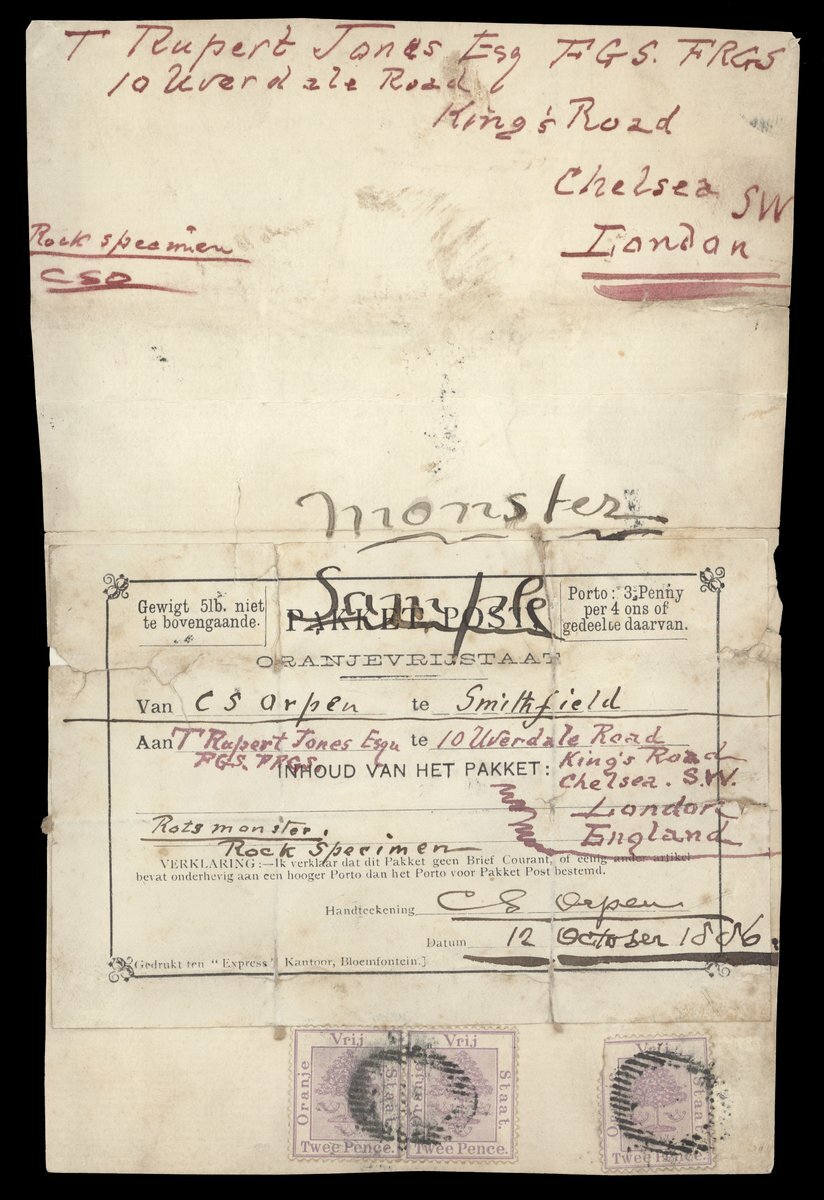 T Rupert Jones Esq FGS. FRGS
10 Uverdale Road
King's Road
Chelsea SW
London
Rock specimen
CSO
monster
Sample
Gewigt 5lb. niet
te bovengaande.
PAKKET POST
Porto: 3 Penny
per 4 ons of
gedeelte daarvan.
ORANJEVRIJSTAAT
Van C S Orpen te Smithfield
Aan T Rupert Jones Esqu te 10 Uverdale Road
FGS. FRGS. King's Road
INHOUD VAN HET PAKKET: Chelsea. S.W.
London
England
Rots monster.
Rock Specimen
VERKLARING:—Ik verklaar dat dit Pakket geen Brief Courant, of eenig ander artikel
bevat onderhevig aan een hooger Porto dan het Porto voor Pakket Post bestemd.
Handteekening C S Orpen
Datum 12 October 1886.
Gedrukt ten "Express" Kantoor, Bloemfontein.]
Vrij
Oranje
Staat.
Twee Pence.
Vrij
Staat.
Twee Pence.
Vrij
Staat.
Twee Pence.